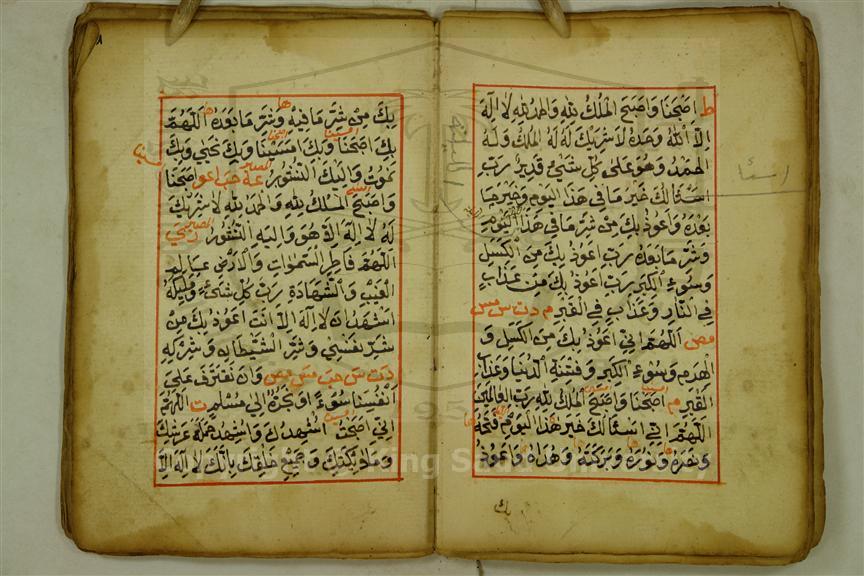 ط اصبحنا واصبح الملك لله والحمد لله لا اله
الا الله وحده لا شريك له له الملك وله
الحمد وهو على كل شئ قدير رب
اسئالك خير ما في هذا اليوم وخير ما
بعده واعوذ بك من شر ما في هذا اليوم
وشر ما بعده رب اعوذ بك من الكسل
وسوء الكبر رب اعوذ بك من عذاب
في النار وعذاب في القبر م د ت س مص
مص اللهم اني اعوذ بك من الكسل و
الهرم وسوء الكبر وفتنة الدنيا وعذاب
القبر م اصبحنا واصبح الملك لله رب العالمين
اللهم اني اسئالك خير هذا اليوم فتحه
ونصره ونوره وبركته وهداه واعوذ
بك
بك من شر ما فيه وشر ما بعده اللهم
بك اصبحنا وبك امسينا وبك نحيى وبك
نموت واليك النشور عه حب اعو اصبحنا
واصبح الملك لله والحمد لله لا شريك
له لا اله الا هو واليه النشور
اللهم فاطر السموات والارض عالم
الغيب والشهادة رب كل شئ ومليكه
اشهد ان لا اله الا انت اعوذ بك من
شر نفسي وشر الشيطان وشركه
د ت س حب مس مص وان نقترف على
انفسنا سوءا او نجره الى مسلم ت اللهم
اني اصبحت اشهدك واشهد حملة عرشك
وملائكتك وجميع خلقك بانك لا اله الا